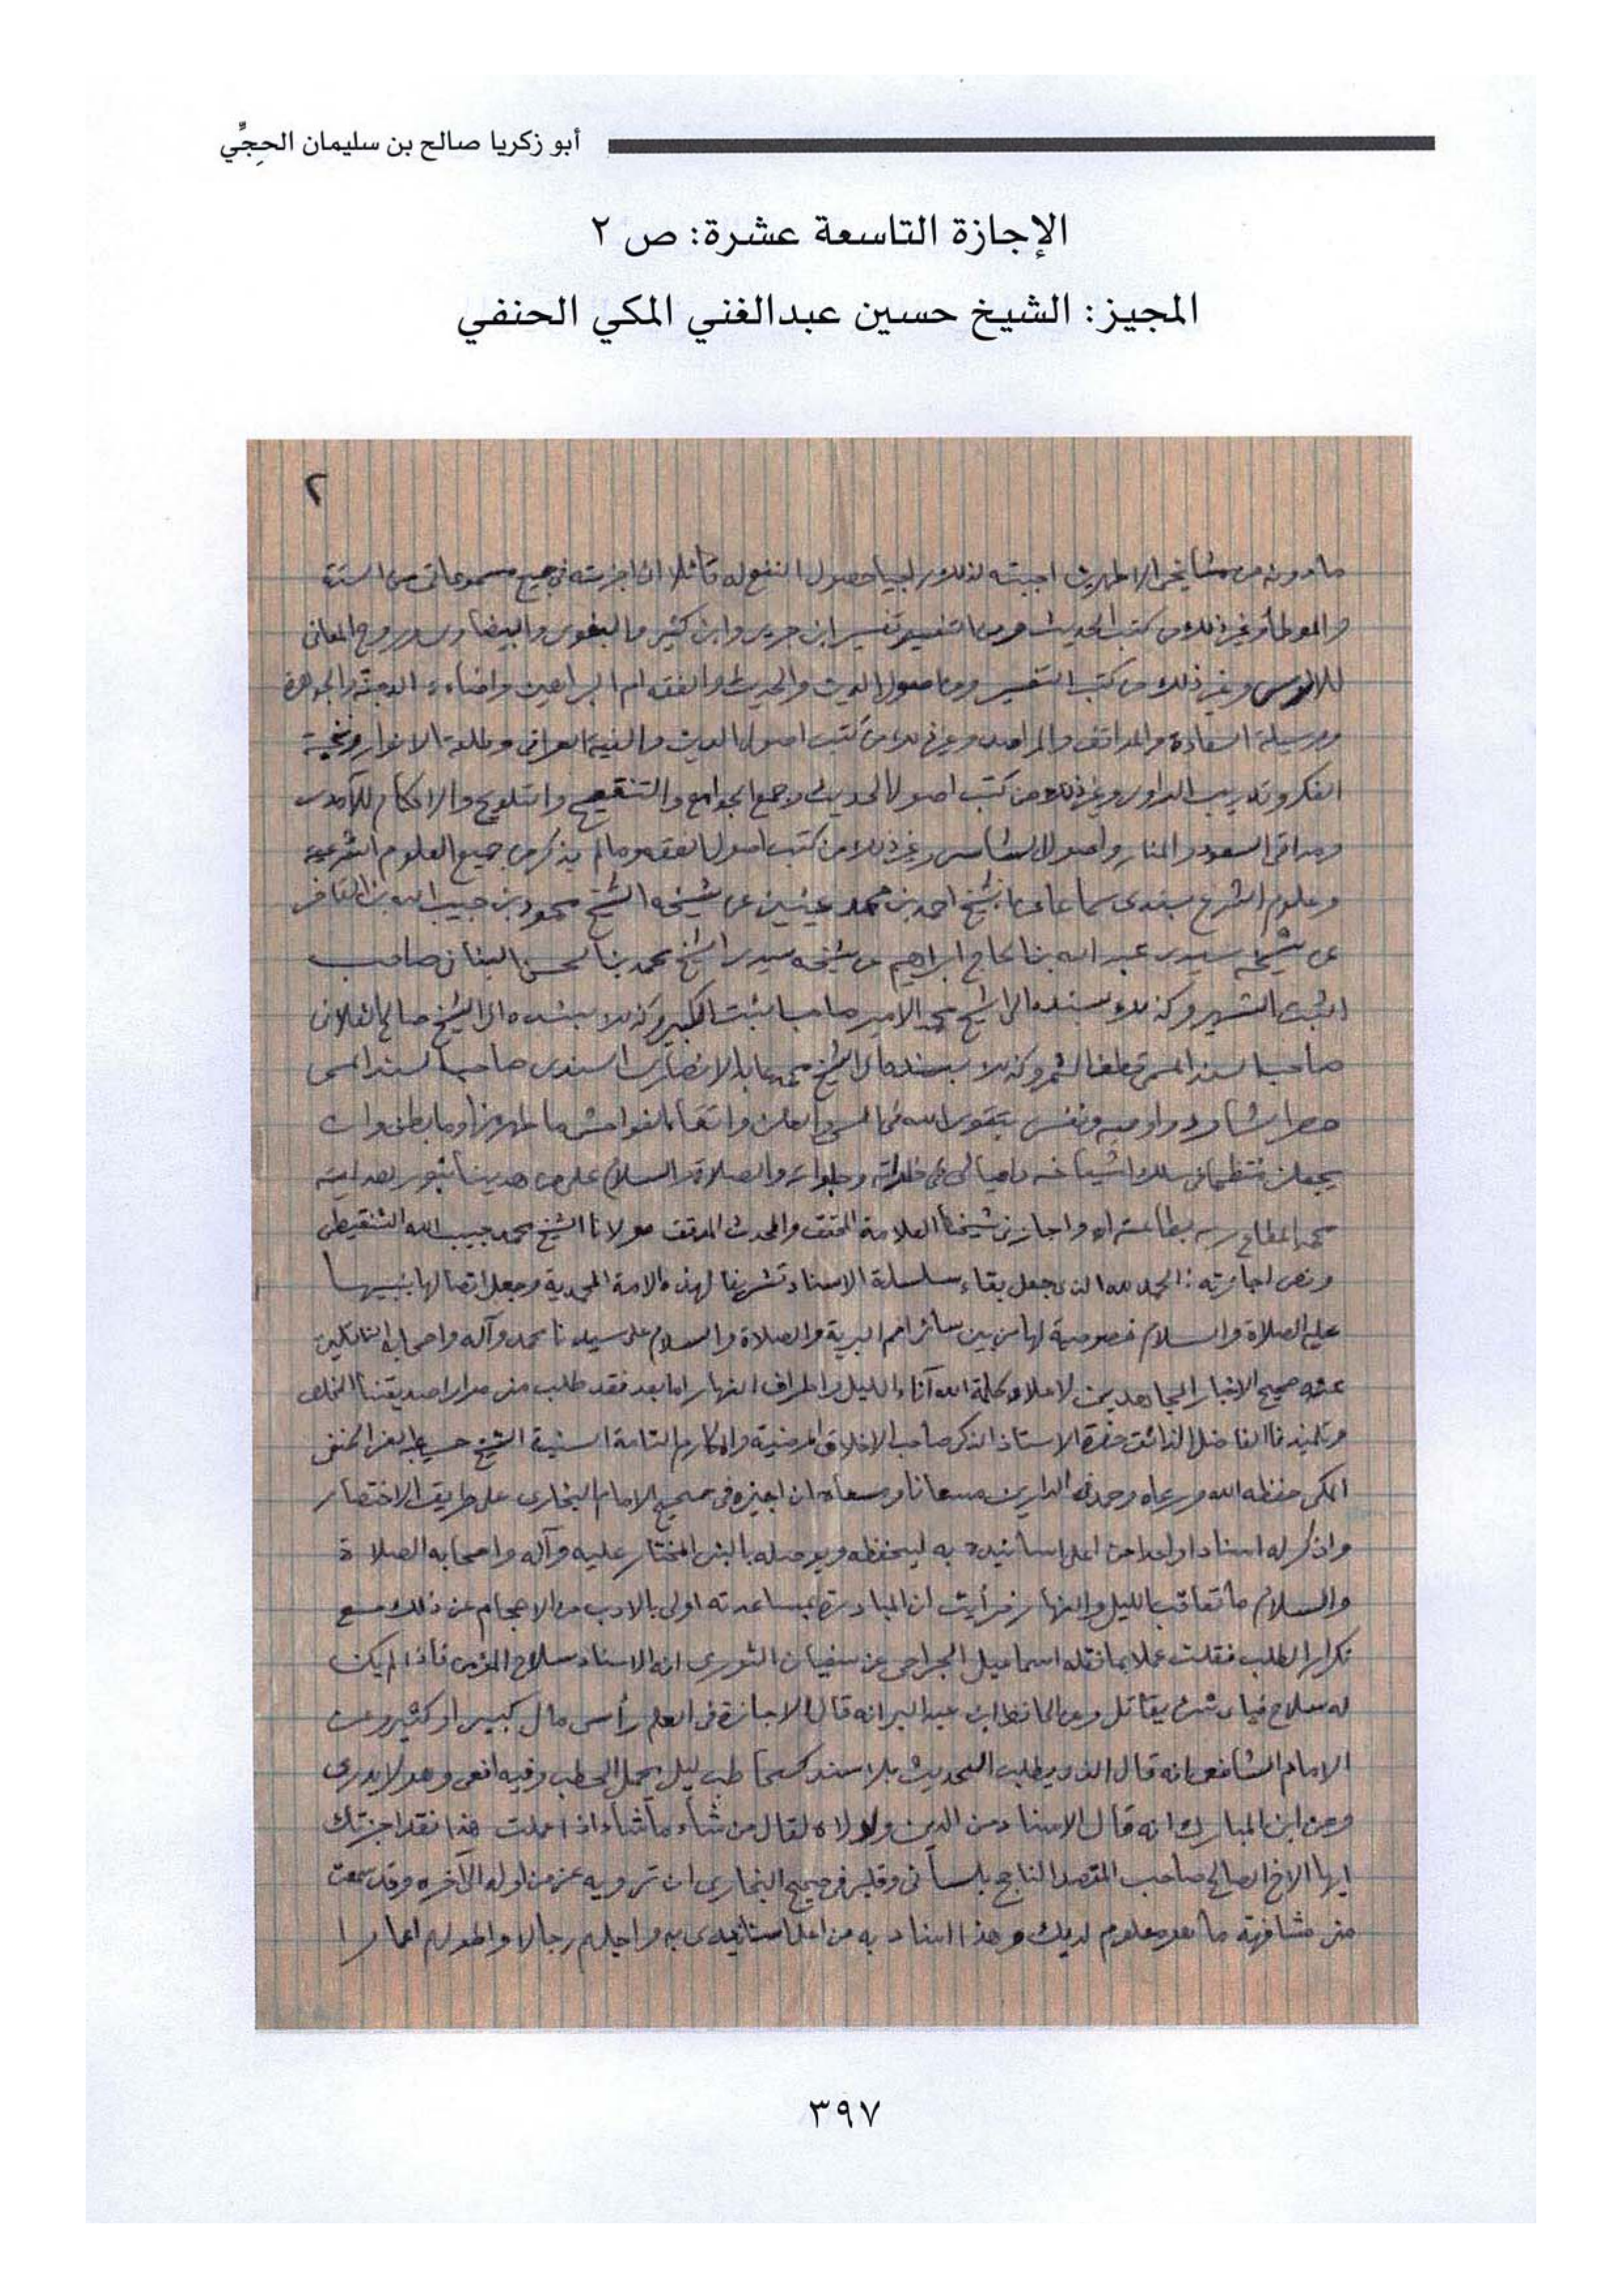 أبو زكريا صالح بن سليمان الحجِّي
الإجازة التاسعة عشرة: ص ٢
المجيز: الشيخ حسين عبدالغني المكي الحنفي
٢
اجبته لذلك حصول النفع له قائلا انى اجزته فى جميع مسموعاتى من الستة
والموطأ وغير ذلك من كتب الحديث ومن التفسير تفسير ابن جرير وابن كثير والبغوى والبيضاوى وروح المعانى
للالوسى وغير ذلك من كتب التفسير ومن اصول الدين والحديث والفقه ام البراهين واضاءة الدجنة والجوهرة
ووسيلة السعادة والمواقف والمراصد وغير ذلك من كتب اصول الدين والفية العراقى وطلعة الانوار ونخبة
الفكر وتدريب الراوى وغير ذلك من كتب اصول الحديث وجمع الجوامع والتنقيح والتلويح والاحكام للآمدى
ومراقى السعود والمنار واصول الشاسى وغير ذلك من كتب اصول الفقه ومالم يذكر من جميع العلوم الشرعية
وعلوم الشرع بسندى سماعا عن الشيخ احمد بن محمد عينين عن شيخه الشيخ محمود بن حبيب الله بن القاض
عن شيخه سيدى عبد الله بن الحاج ابراهيم عن شيخه سيدى الشيخ محمد بن الحسن البنانى صاحب
الثبت الشهير وكذلك بسنده الى الشيخ محمد الامير صاحب الثبت الكبير وكذلك بسنده الى الشيخ صالح الفلانى
صاحب السند المسمى قطف الثمر وكذلك بسنده الى الشيخ محمد عابد الانصارى السندى صاحب السند المسمى
حصر الشارد واوصيه ونفسى بتقوى الله فى السر والعلن واتقاء الفواحش ما ظهر منها وما بطن وان
يجعلنى منتظما فى سلك اشياخه داعيا لى فى خلواته وجلواته والصلاة والسلام على من هدينا بنور هدايته
واجازنى شيخنا العلامة المحقق والمحدث المدقق مولانا الشيخ محمد حبيب الله الشنقيطى
ونص اجازته: الحمد لله الذى جعل بقاء سلسلة الاسناد تشريفا لهذه الامة المحمدية وجعل اتصالها بنبيها
عليه الصلاة والسلام خصوصية لها من بين سائر امم البرية والصلاة والسلام على سيدنا محمد وآله واصحابه الناقلين
عنه صحيح الاخبار المجاهدين لاعلاء كلمة الله آناء الليل واطراف النهار اما بعد فقد طلب منى مرارا صديقنا الخلص
وتلميذنا الفاضل الذائق حضرة الاستاذ الذكى صاحب الاخلاق المرضية والمكارم التامة السنية الشيخ حسين عبد الغنى الحنفى
المكى حفظه الله ورعاه وحمد فى الدارين مسعانا ومسعاه ان اجيزه فى صحيح الامام البخارى على طريق الاختصار
واذكر له اسنادا واحدا من اعلى اسانيدى به ليحفظه ويوصله بالنبى المختار عليه وآله واصحابه الصلاة
والسلام ما تعاقب الليل والنهار فرأيت ان المبادرة بمساعدته اولى بالادب من الاحجام عن ذلك مع
تكرار الطلب فقلت عملا بما نقله اسماعيل الجراحى عن سفيان الثورى ان الاسناد سلاح المؤمن فاذا لم يكن
له سلاح فباى شىء يقاتل وعن الحافظ ابن عبد البر انه قال الاجازة فى العلم رأس مال كبير او كثير وعن
الامام الشافعى انه قال الذى يطلب الحديث بلا سند كحاطب ليل يحمل الحطب وفيه افعى وهو لا يدرى
وعن ابن المبارك انه قال الاسناد من الدين ولولاه لقال من شاء ما شاء اذا علمت هذا فقد اجزتك
ايها الاخ الصالح صاحب المقصد الناجح بلسانى وقلبى فى صحيح البخارى ان ترويه عنى من اوله الى آخره وقد سمعت
منى مشافهة ما هو معلوم لديك وهذا اسناد به من اعلا اسانيدى به واجلهم رجالا واطولهم اعمارا
٣٩٧